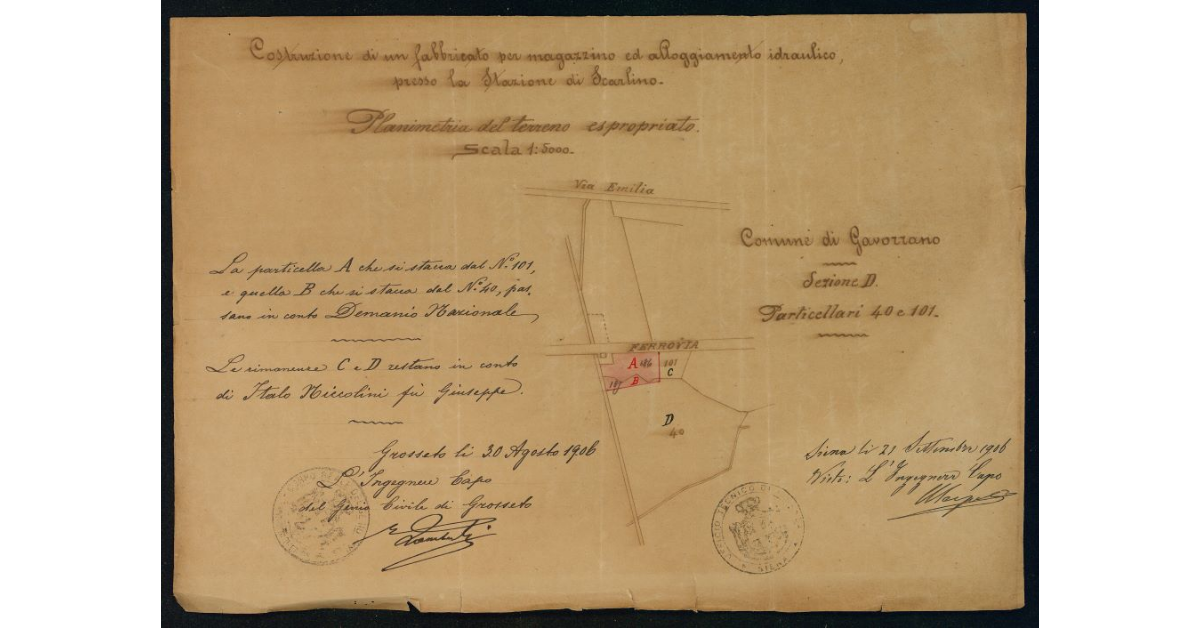 Costruzione di un fabbricato per magazzino ed alloggiamento idraulico,
presso la Stazione di Scarlino.
Planimetria del terreno espropriato.
Scala 1:5000.
Via Emilia
Comune di Gavorrano
Sezione D.
Particellari 40 e 101.
La particella A che si stacca dal N.º 101,
e quella B che si stacca dal N.º 40, pas-
sano in conto Demanio Nazionale
FERROVIA
A 186 101
C
187 B
Le rimanenze C e D restano in conto
di Italo Niccolini fù Giuseppe.
D
40
Grosseto li 30 Agosto 1906
L'Ingegnere Capo
del Genio Civile di Grosseto
Siena li 21 Settembre 1906
Visto: L'Ingegnere Capo
UFFICIO TECNICO DI
SIENA